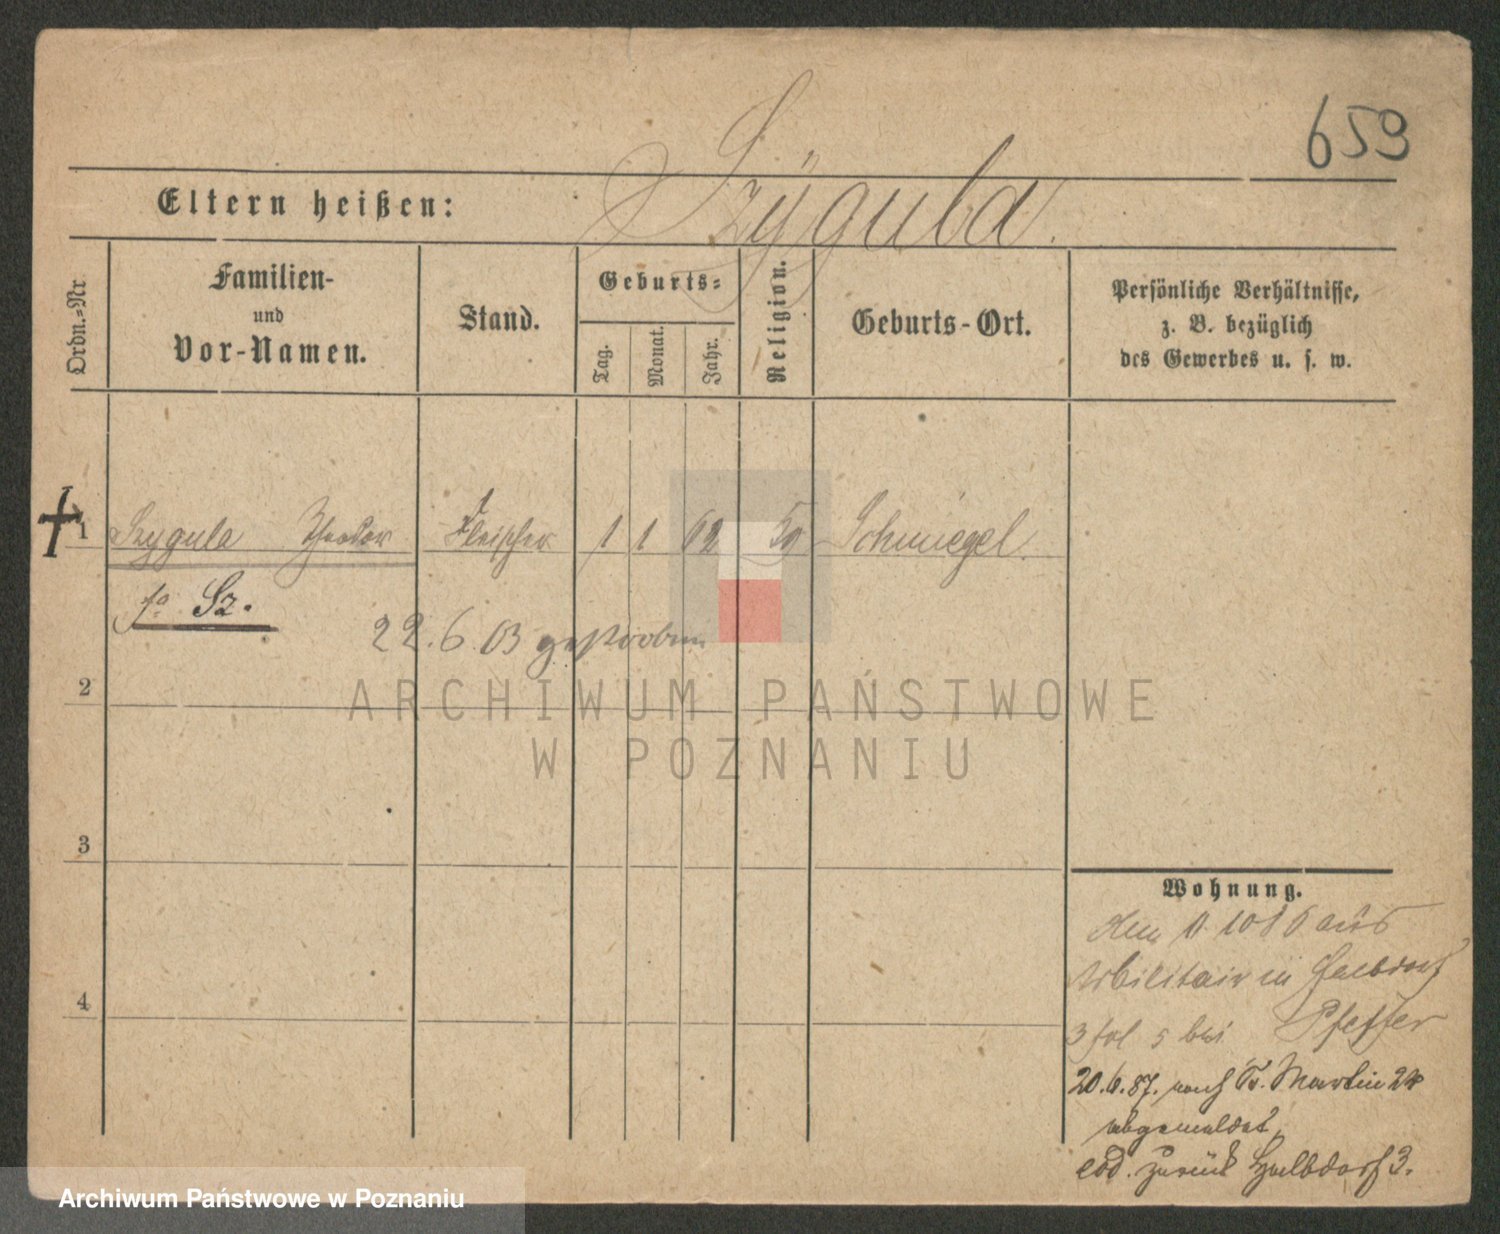 659
Szÿgula.
Eltern heißen:
Ordn.=Nr.
Familien-
und
Vor-Namen.
Stand.
Geburts=
Tag.
Monat.
Jahr.
Religion.
Geburts-Ort.
Persönliche Verhältnisse,
z. B. bezüglich
des Gewerbes u. s. w.
1 Szygula Theodor Fleischer 1 1 62 Schmiegel.
Sz.
22.6.03 gestorben
2
ARCHIWUM PAŃSTWOWE
W POZNANIU
3
Wohnung.
aus
Militair in Halbdorf
4
3 bei Pfeffer
20.6.87. nach St. Martin
abgemeldet,
zurück Halbdorf 3.
Archiwum Państwowe w Poznaniu